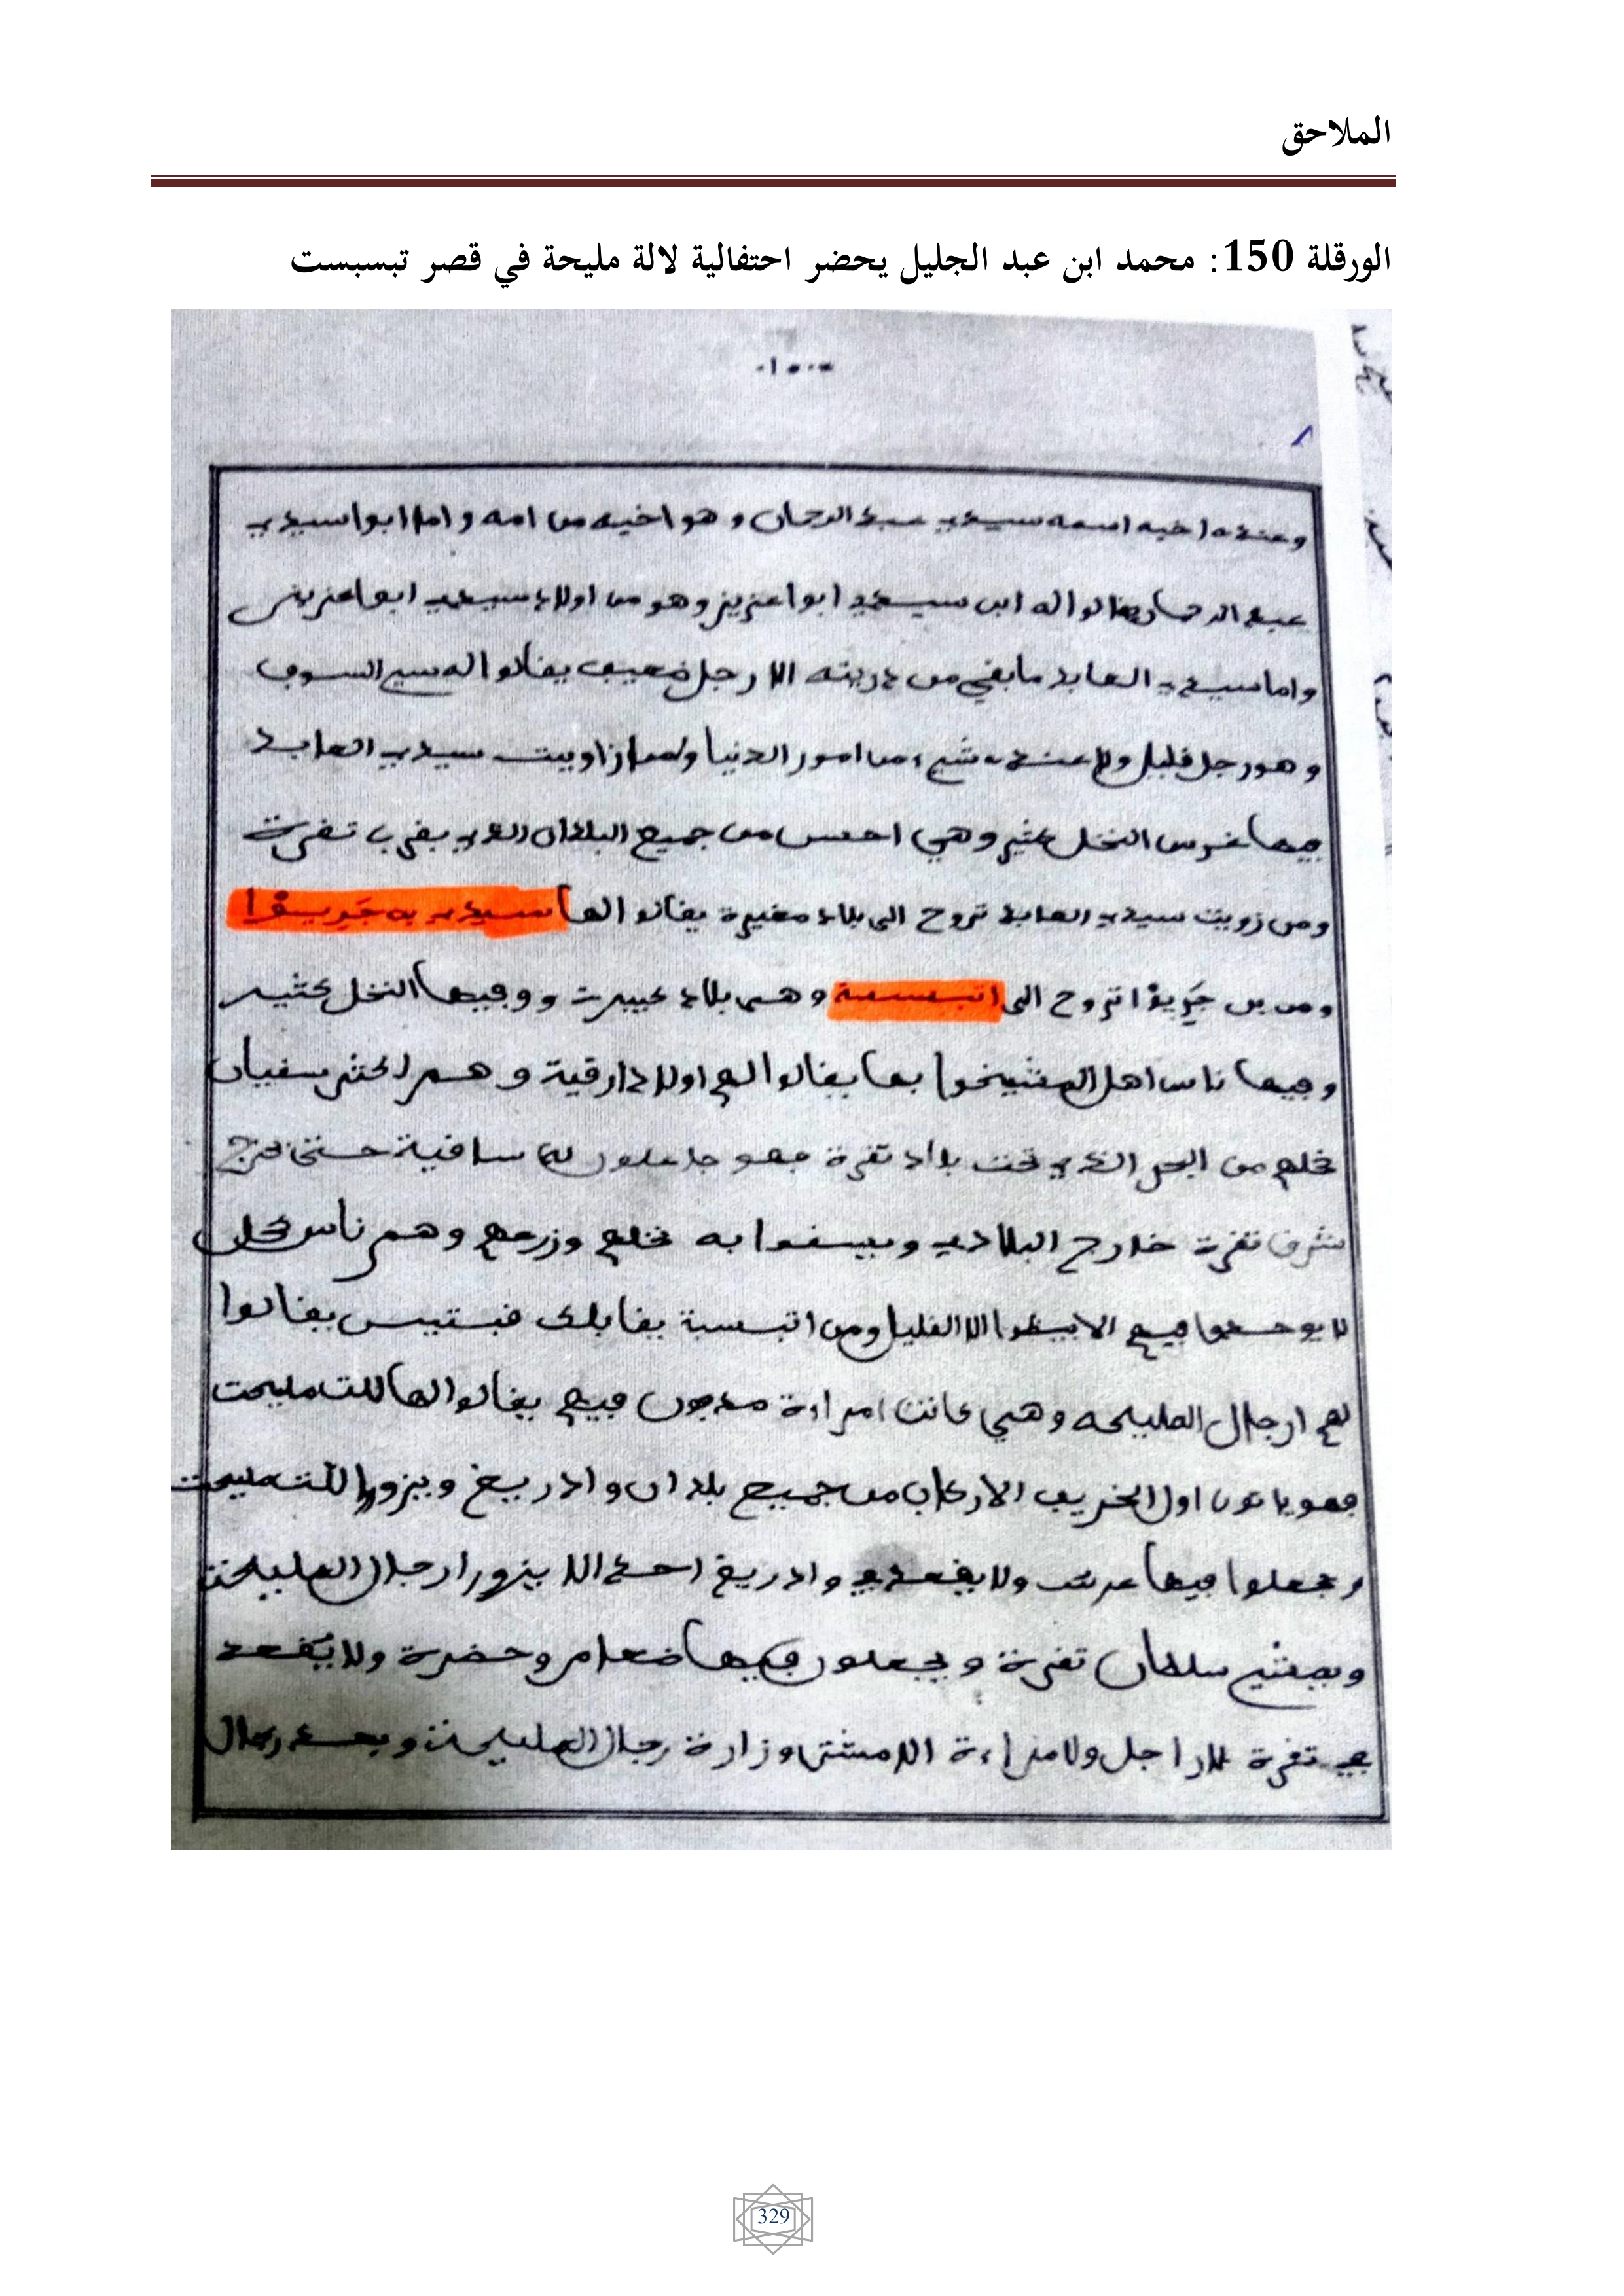 الملاحق
الورقلة 150: محمد ابن عبد الجليل يحضر احتفالية لالة مليحة في قصر تبسبست
٠١٥٠
وعنده اخيه اسمه سيدي عبد الرحمان وهو اخيه من امه واما ابوا سيدي
عبد الرحمان يفالوا له ابن سيدي ابوا عزيز وهو من اولاد سيدي ابوا عزيز
واما سيدي العابد ما بفي من ذريته الا رجل ضعيف يفالوا له سي السوفي
وهو رجل فليل ولا عنده شيء من امور الدنيا زاويت سيدي العابد
فيها غرس النخل كثير وهي احسن من جميع البلدان الذي بفرب تفرت
ومن زويت سيدي العابد تروح الى بلاد صغيرة يفالوا لها سيدي بن جريوا
ومن بن تروح الى اتبسبسة وهي بلاد كبيرت ووفيها النخل كثير
وفيها ناس اهل المشيخوا بها يفالوا لهم اولاد وهم اكثر سفيان
نخلهم من البحر الذي تحت بلاد تفرة فهو جاعلون لها سافية حتى تخرج
شرف تفرة خارج البلاد وييسفوا به نخلهم وزرعهم وهم ناس
فيهم الا الفليل ومن اتبسبسة يفابلك يفالوا
لهم ارجال المليحه وهي كانت امراءة مدفون فيهم يفالوا لها للت مليحت
فهو ياتون اول الخريف من جميع بلدان وادريغ ويزوروا للت مليحت
ويجعلوا فيها ولا يفعد في وادريغ احد الا يزور ارجال المليحت
ويمشي سلطان تفرة ويجعلون فيها ضعام وحضرة ولا يفعد
في تفرة لا راجل ولا مراءة الا مشى وزارة رجال المليحت وبعد رجال
329